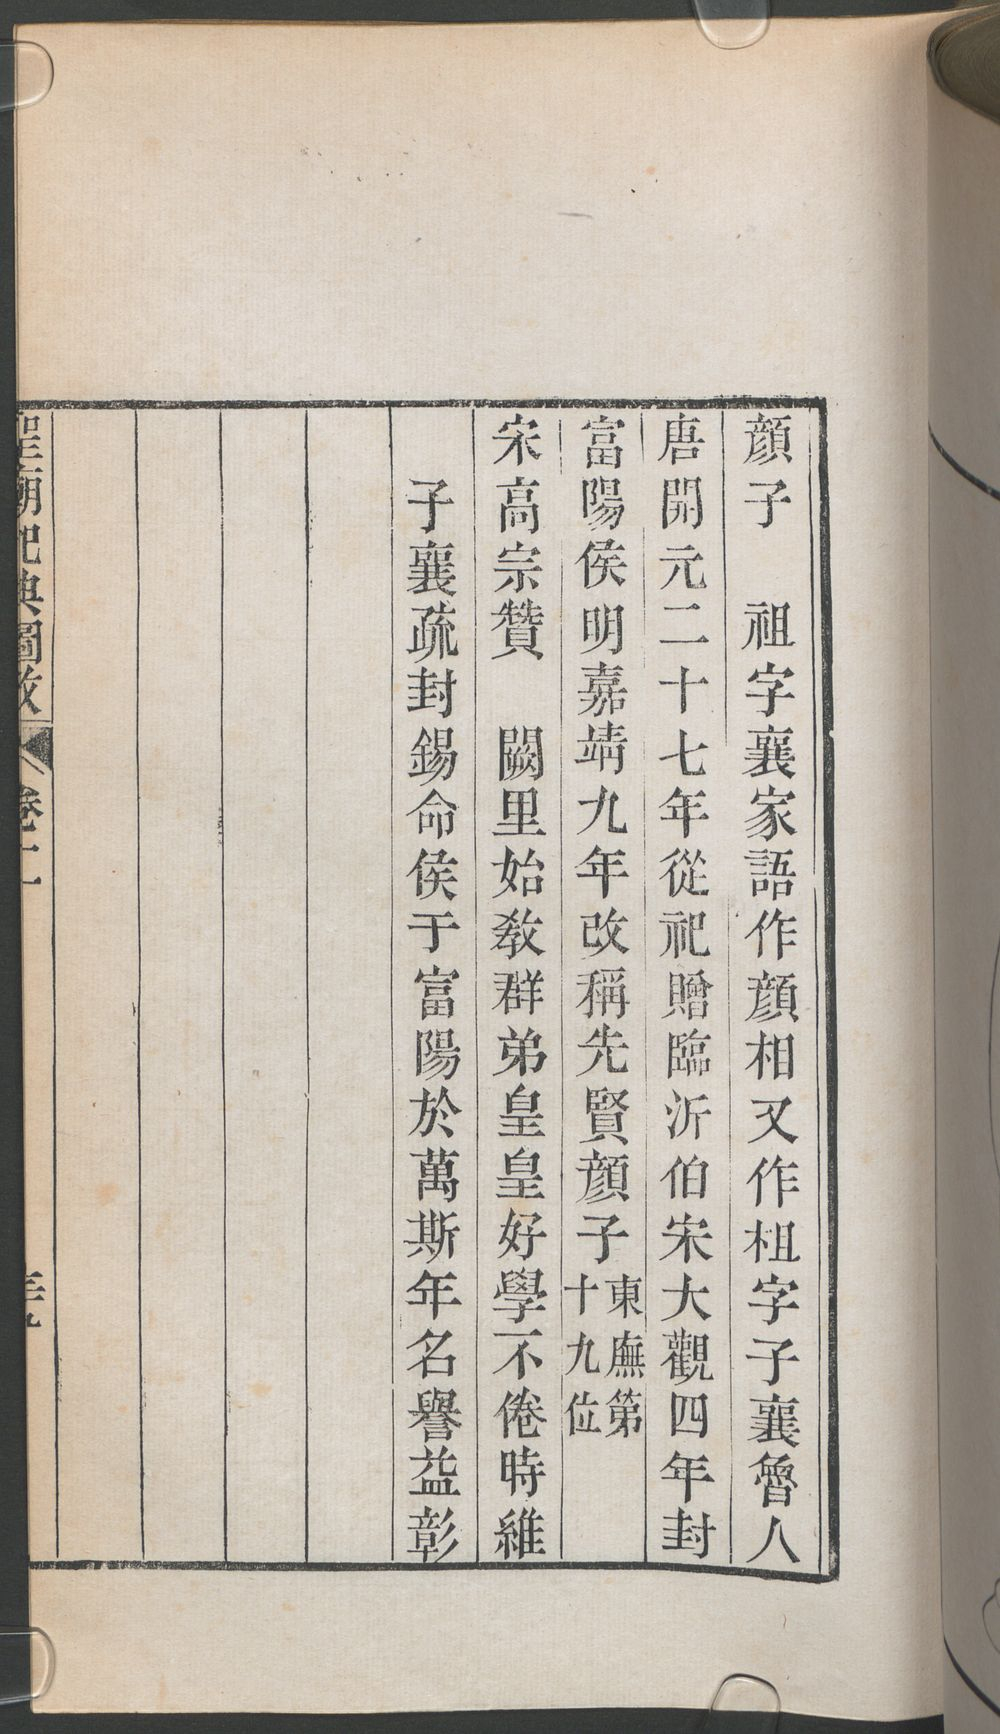 顔子　祖字襄家語作顔相又作柤字子襄魯人
唐開元二十七年從祀贈臨沂伯宋大觀四年封
富陽侯明嘉靖九年改稱先賢顔子東廡第十九位
宋高宗贊　闕里始教群弟皇皇好學不倦時維
子襄疏封錫命侯于富陽於萬斯年名譽益彰
聖廟祀典圖攷
卷二